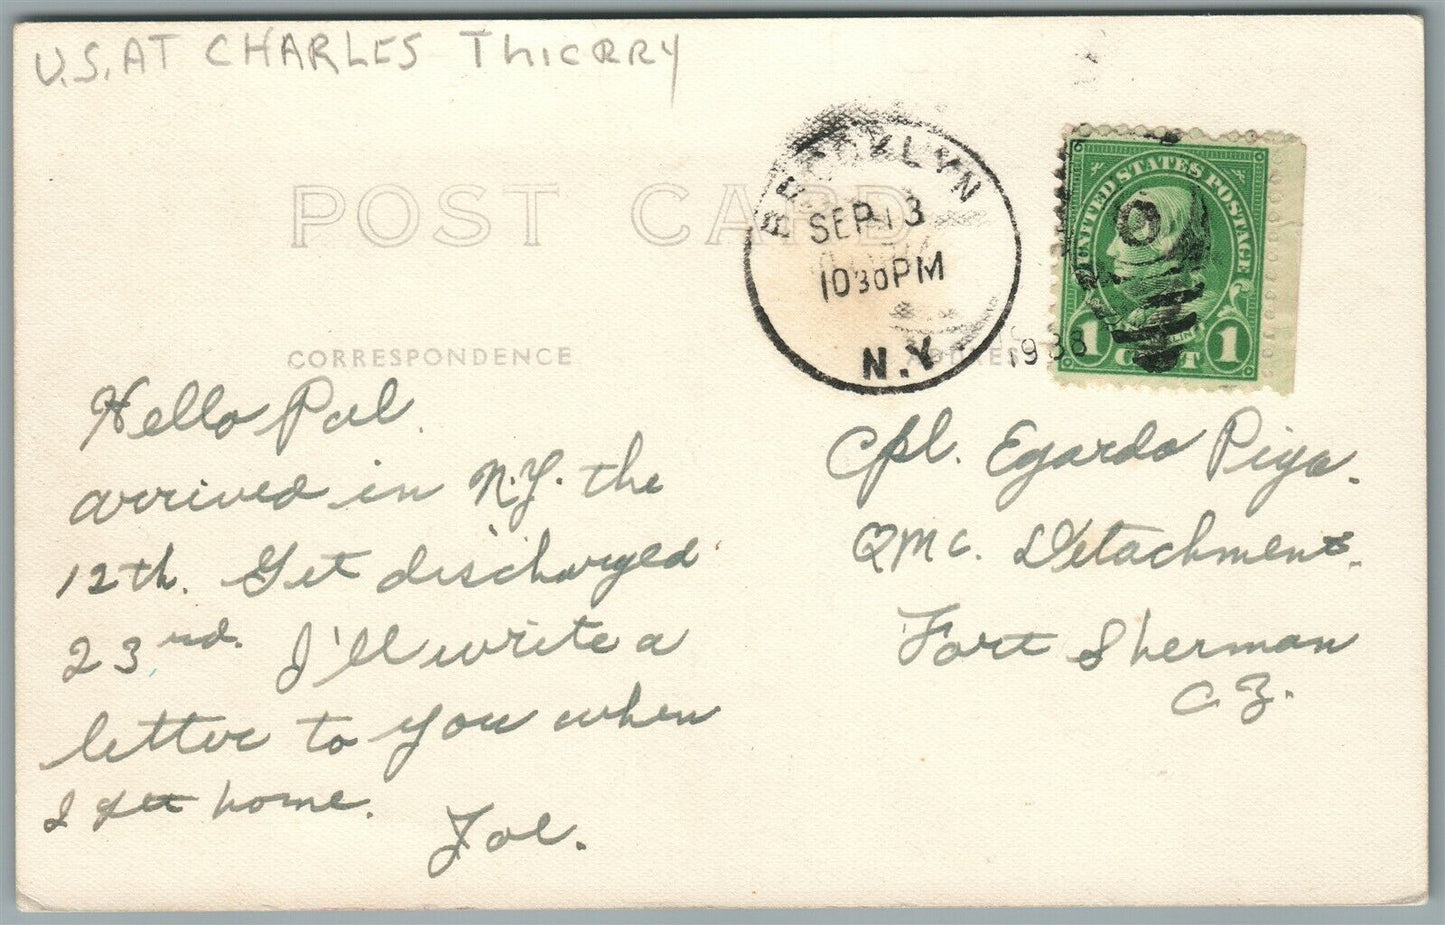 U.S.AT CHARLES Thierry
POST CARD
BROOKLYN
SEP 13
1030PM
N.Y.
1933
UNITED STATES POSTAGE
1 CENT 1
CORRESPONDENCE
ADDRESS
Hello Pal.
arrived in N.Y. the
12th. Get discharged
23rd. I'll write a
letter to you when
I get home.
Joe.
Cpl. Egardo Piga.
QMC. Detachment.
Fort Sherman
C.Z.